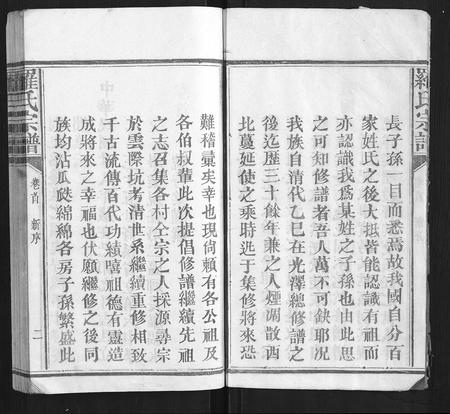 羅氏宗譜
長子孫一目而悉焉故我國自分百
家姓氏之後大抵皆能認識有祖而
亦認識我為某姓之子孫也由此思
之可知修譜者吾人萬不可缺耶況
我族自清代乙巳在光澤總修譜之
後迄歷三十餘年兼之人煙渙散西
比蔓延使之乘時迯于集修將來恐
難稽彙矣幸也現尙賴有各公祖及
各伯叔輩此次提倡修譜繼續先祖
之志召集各村仝宗之人採源尋宗
於雲際坑考清世系繼續重修相致
千古流傳百代功績嘻祖德有靈造
成將來之幸福也伏願繼修之後同
族均沾瓜瓞綿綿各房子孫繁盛此
羅氏宗譜
卷首 新序
二